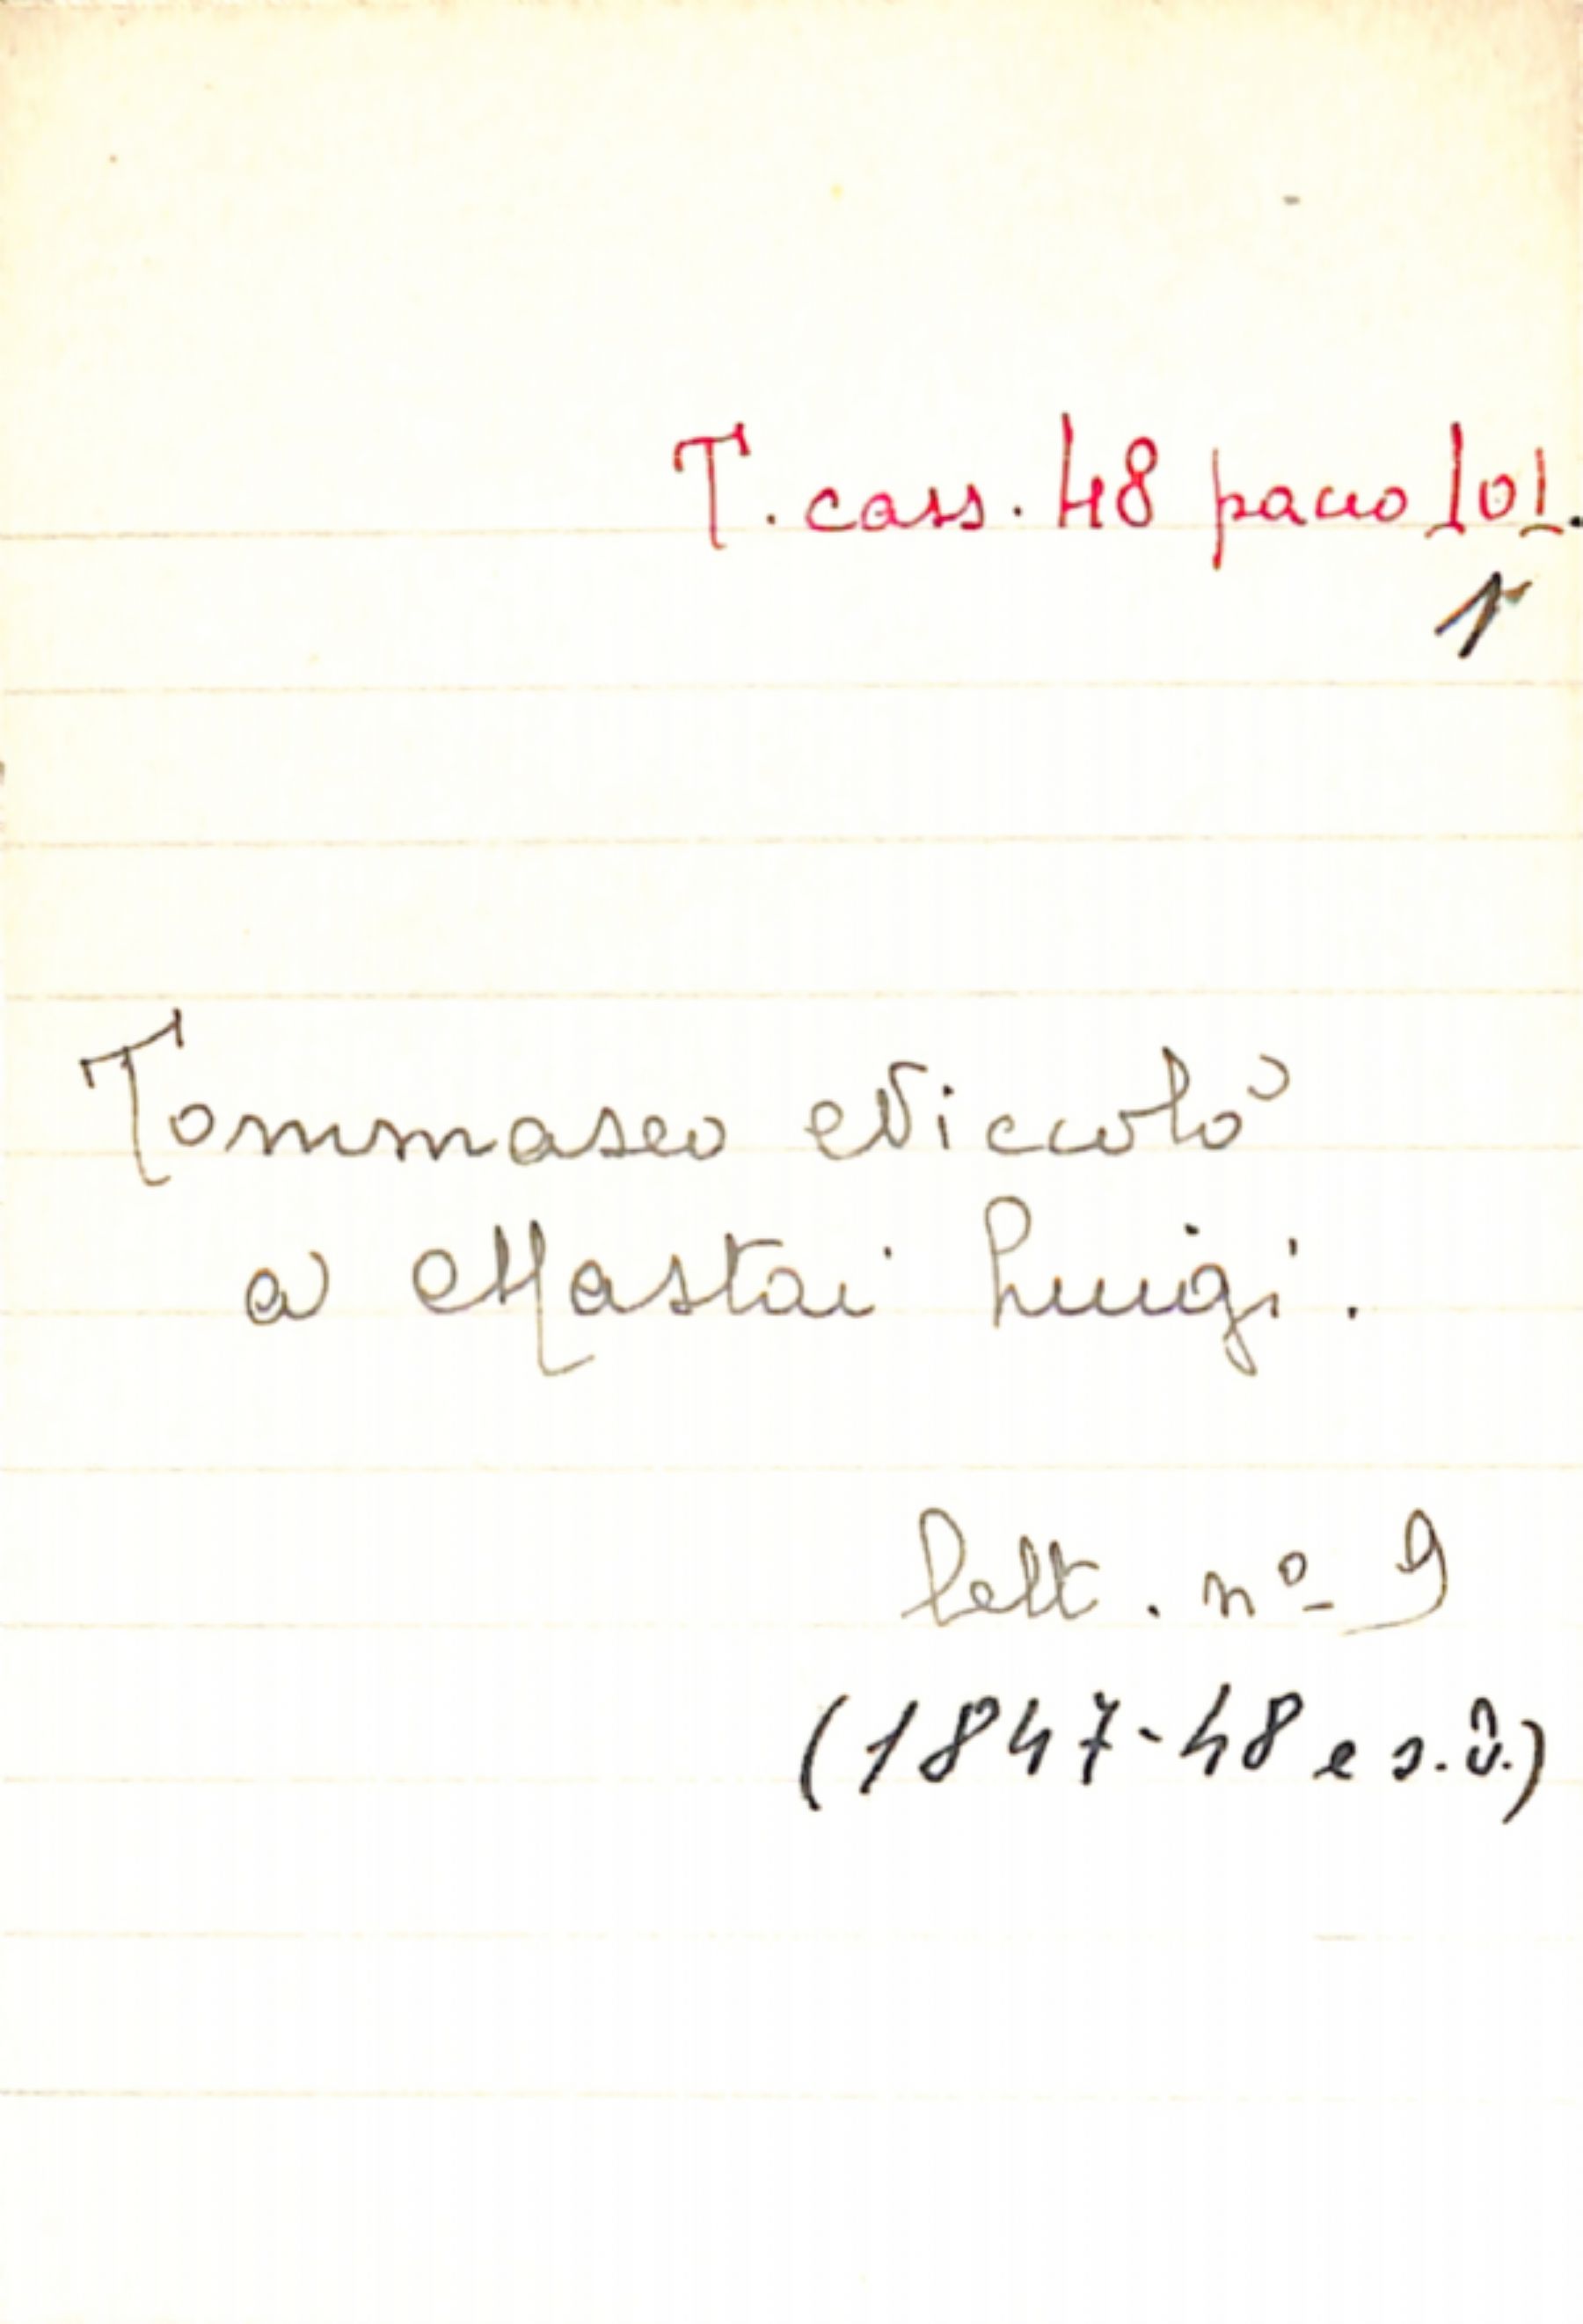 T. cass. 48 pacco 101.
1
Tommaseo Niccolò
a Mastai Luigi.
lett. nº 9
(1847-48 e s.d.)